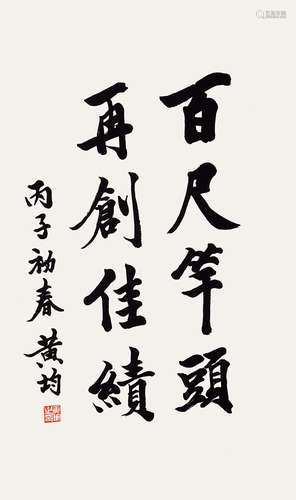 百尺竿頭
再創佳績
丙子初春黄均